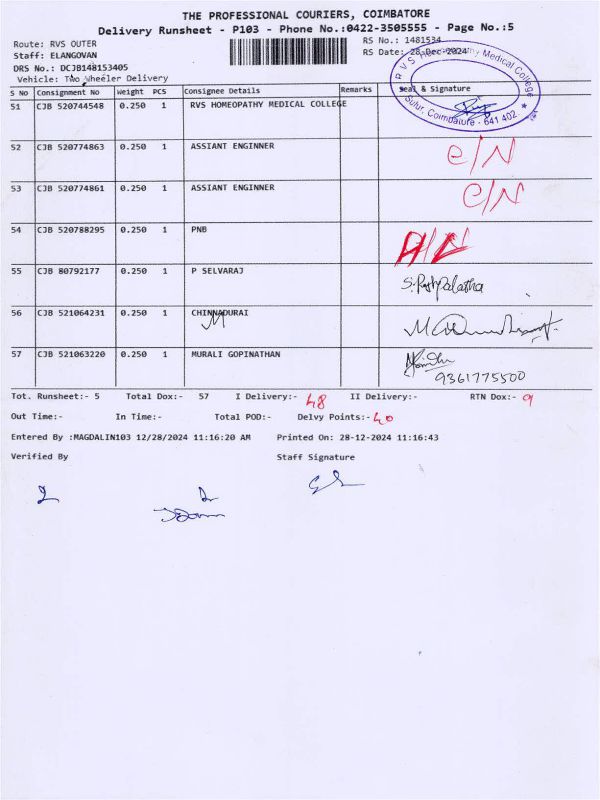 THE PROFESSIONAL COURIERS, COIMBATORE
Delivery Runsheet - P103 - Phone No.:0422-3505555 - Page No.:5
Route: RVS OUTER
RS No.: 1481534
Staff: ELANGOVAN
RS Date: 28-Dec-2024
DRS No.: DCJB148153405
Vehicle: Two Wheeler Delivery
R V S Homeopathy Medical College
Sulur, Coimbatore - 641 402
S No Consignment No Weight PCS Consignee Details Remarks Seal & Signature
51 CJB 520744548 0.250 1 RVS HOMEOPATHY MEDICAL COLLEGE
52 CJB 520774863 0.250 1 ASSIANT ENGINNER
53 CJB 520774861 0.250 1 ASSIANT ENGINNER
54 CJB 520788295 0.250 1 PNB
55 CJB 80792177 0.250 1 P SELVARAJ
56 CJB 521064231 0.250 1 CHINNADURAI
57 CJB 521063220 0.250 1 MURALI GOPINATHAN
9361775500
Tot. Runsheet:- 5 Total Dox:- 57 I Delivery:- 48 II Delivery:- RTN Dox:- 9
Out Time:- In Time:- Total POD:- Delvy Points:- 40
Entered By :MAGDALIN103 12/28/2024 11:16:20 AM Printed On: 28-12-2024 11:16:43
Verified By Staff Signature